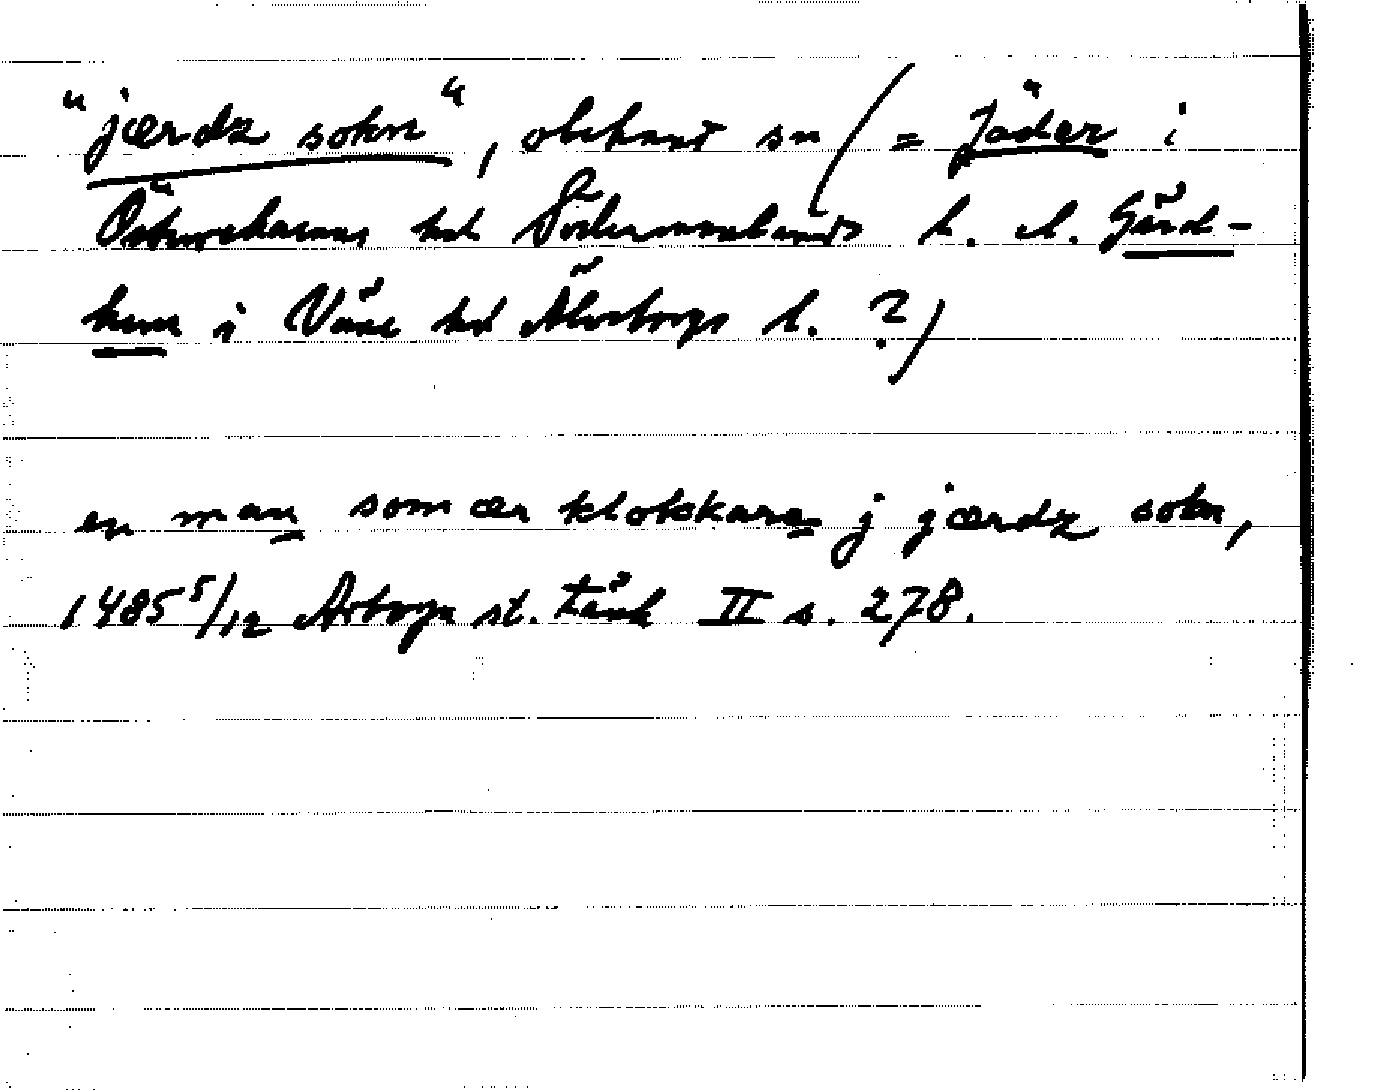 "jærdz sokn", obekant sn (= Jäder i
Österrekarne hd Södermanlands l. el. Gärd-
hem i Väne hd Älvsborgs l. ?)
en man som ær klokkare j jærdz sokn,
1485 5/12 Arboga st. tänk II s. 278.